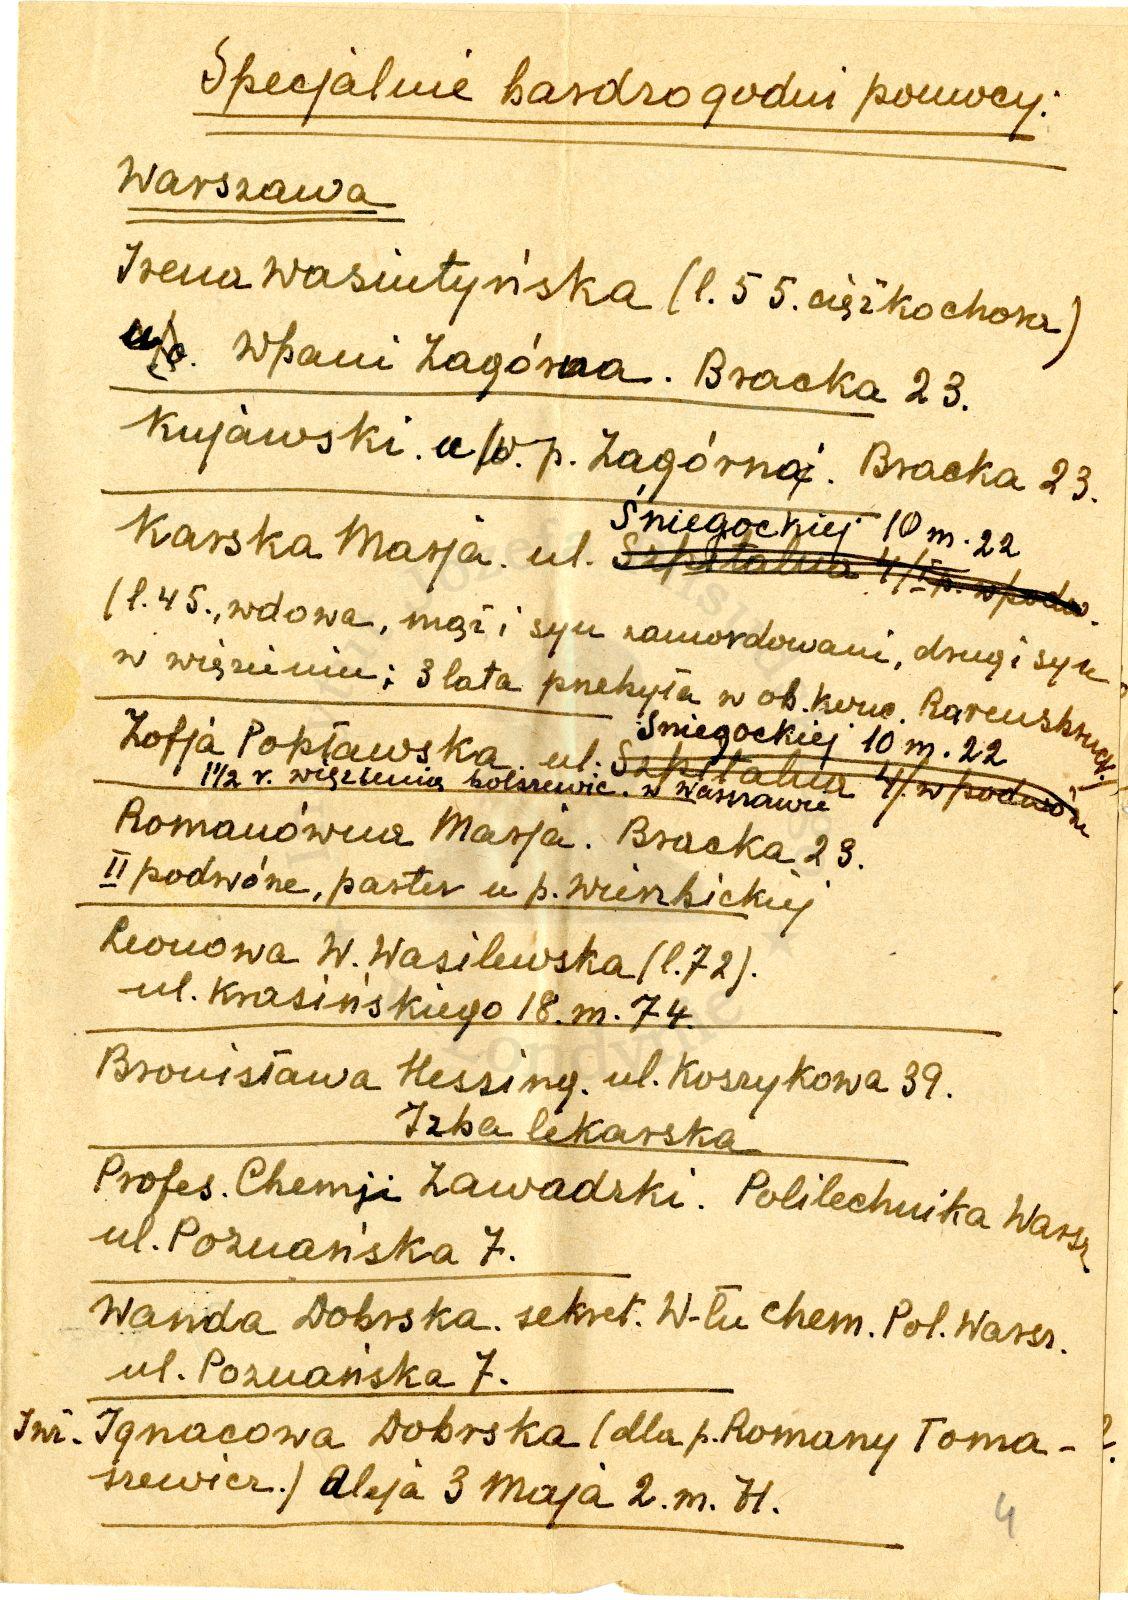 Specjalnie bardzo godni pomocy:
Warszawa
Irena Wasiutyńska (l. 55. ciężko chora)
w pani Zagórna. Bracka 23.
Kujawski. p. Zagórnąj. Bracka 23.
Śniegockiej 10 m. 22
Karska Marja. ul. Szpitalna 4/I p. w podw.
(l. 45., wdowa, mąż i syn zamordowani, drugi syn
w więzieniu; 3 lata przebyła w ob. konc. Ravensbruck)
Śniegockiej 10 m. 22
Zofja Popławska. ul. Szpitalna 4/. w podwór
1 1/2 r. więzienia bolszewic. w Warszawie
Romanówna Marja. Bracka 23.
II podwórze, parter u p. Wierzbickiej
Leonowa W. Wasilewska (l. 72).
ul. Krasińskiego 18. m. 74.
Bronisława Hessing. ul. Koszykowa 39.
Izba lekarska
Profes. Chemji Zawadzki. Politechnika Warsz
ul. Poznańska 7.
Wanda Dobrska. sekret. W-łu Chem. Pol. Warsz.
ul. Poznańska 7.
Inż. Ignacowa Dobrska (dla p. Romany Toma-
szewicz.) Aleja 3 Maja 2. m. 71.
4